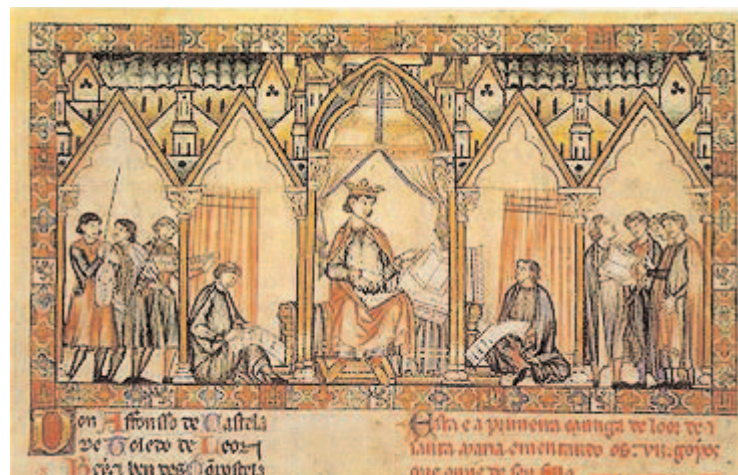 Don Affonsso de Castela
de Toledo de Leon
Esta e a primeira cantiga de loor de
santa maria ementando os. vii. goyos
que ouve de seu fillo